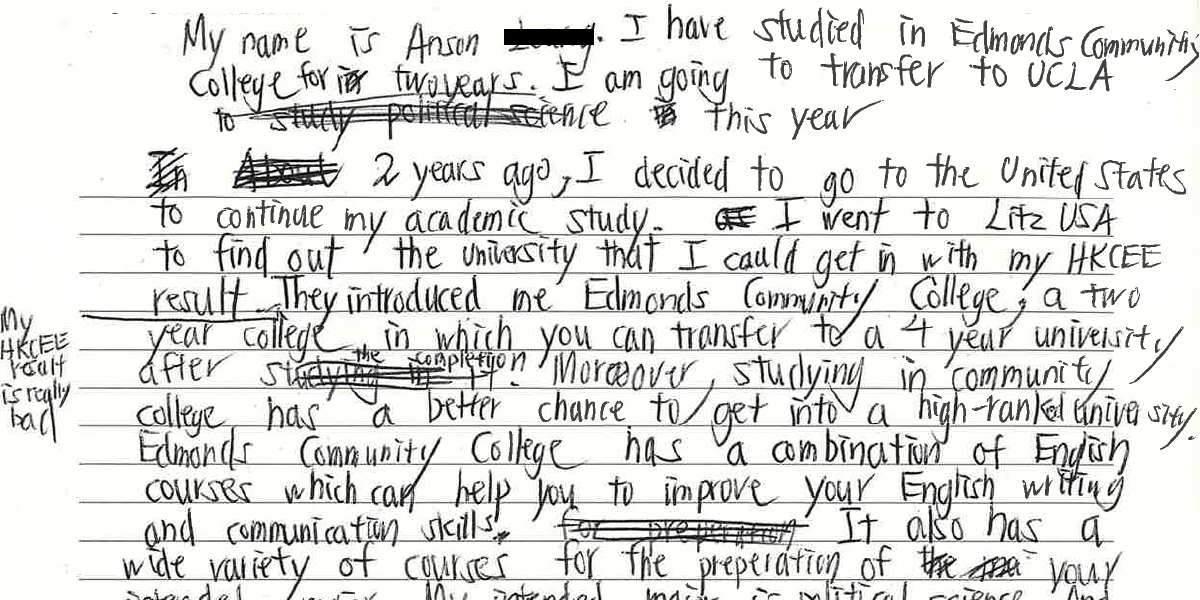 My name is Anson . I have studied in Edmonds Community
College for two years. I am going to transfer to UCLA
to study political science this year
In About 2 years ago, I decided to go to the United States
to continue my academic study. I went to Litz USA
to find out the university that I could get in with my HKCEE
result. They introduced me Edmonds Community College, a two
My
HKCEE
result
is really
bad
year college in which you can transfer to a 4 year university
after studying in it the completion. Moreover, studying in community
college has a better chance to get into a high-ranked university.
Edmonds Community College has a combination of English
courses which can help you to improve your English writing
and communication skills. For preperation It also has a
wide variety of courses for the preperation of the your
intended major. My intended major is political science. And